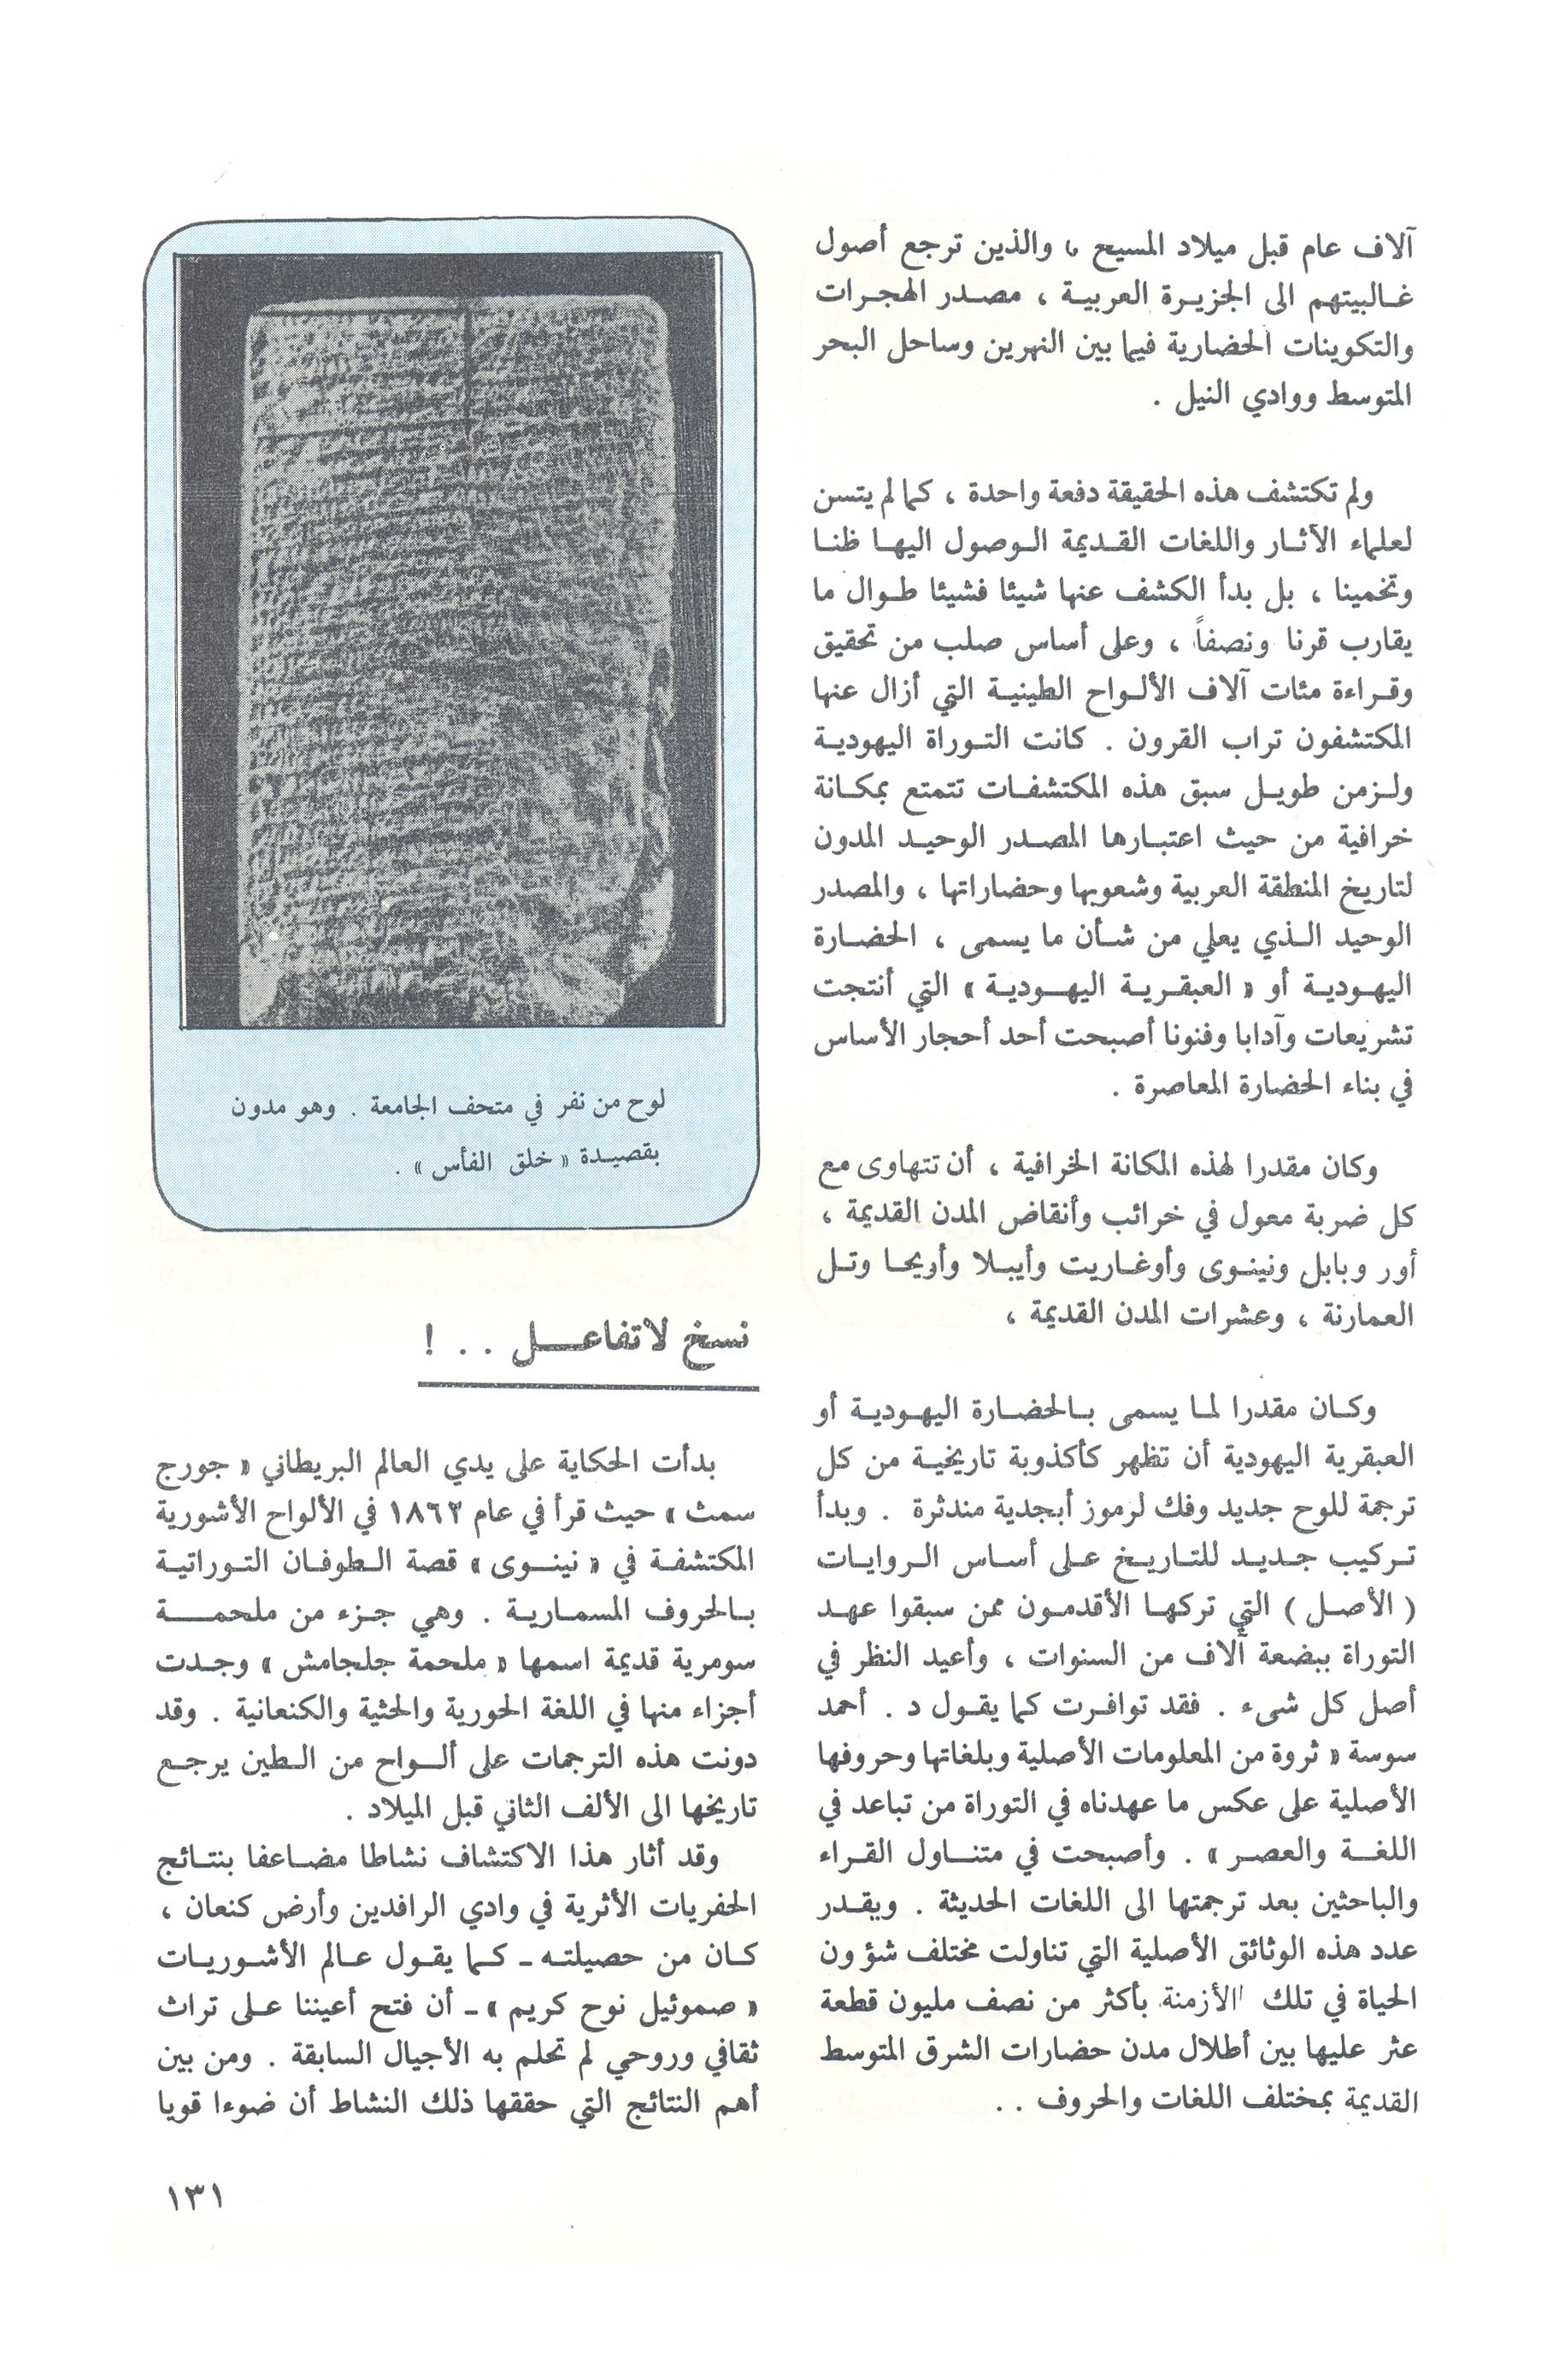 آلاف عام قبل ميلاد المسيح ، والذين ترجع أصول
غالبيتهم الى الجزيرة العربية ، مصدر الهجرات
والتكوينات الحضارية فيما بين النهرين وساحل البحر
المتوسط ووادي النيل .
ولم تكتشف هذه الحقيقة دفعة واحدة ، كما لم يتسن
لعلماء الأثار واللغات القديمة الوصول اليها ظنا
وتخمينا ، بل بدأ الكشف عنها شيئا فشيئا طوال ما
يقارب قرنا ونصفاً ، وعلى أساس صلب من تحقيق
وقراءة مئات آلاف الألواح الطينية التي أزال عنها
المكتشفون تراب القرون . كانت التوراة اليهودية
ولزمن طويل سبق هذه المكتشفات تتمتع بمكانة
خرافية من حيث اعتبارها المصدر الوحيد المدون
لتاريخ المنطقة العربية وشعوبها وحضاراتها ، والمصدر
الوحيد الذي يعلي من شأن ما يسمى ، الحضارة
اليهودية أو « العبقرية اليهودية » التي أنتجت
تشريعات وآدابا وفنونا أصبحت أحد أحجار الأساس
في بناء الحضارة المعاصرة .
وكان مقدرا لهذه المكانة الخرافية ، أن تتهاوى مع
كل ضربة معول في خرائب وأنقاض المدن القديمة ،
أور وبابل ونينوى وأوغاريت وأيبلا وأريحا وتل
العمارنة ، وعشرات المدن القديمة ،
وكان مقدرا لما يسمى بالحضارة اليهودية أو
العبقرية اليهودية أن تظهر كأكذوبة تاريخية من كل
ترجمة للوح جديد وفك لرموز أبجدية مندثرة . وبدأ
تركيب جديد للتاريخ على أساس الروايات
( الأصل ) التي تركها الأقدمون ممن سبقوا عهد
التوراة ببضعة آلاف من السنوات ، وأعيد النظر في
أصل كل شىء . فقد توافرت كما يقول د . أحمد
سوسة « ثروة من المعلومات الأصلية وبلغاتها وحروفها
الأصلية على عكس ما عهدناه في التوراة من تباعد في
اللغة والعصر » . وأصبحت في متناول القراء
والباحثين بعد ترجمتها الى اللغات الحديثة . ويقدر
عدد هذه الوثائق الأصلية التي تناولت مختلف شؤون
الحياة في تلك الأزمنة بأكثر من نصف مليون قطعة
عثر عليها بين أطلال مدن حضارات الشرق المتوسط
القديمة بمختلف اللغات والحروف . .
لوح من نفر في متحف الجامعة . وهو مدون
بقصيدة « خلق الفأس » .
نسخ لا تفاعل . . !
بدأت الحكاية على يدي العالم البريطاني « جورج
سمث » حيث قرأ في عام ١٨٦٢ في الألواح الأشورية
المكتشفة في « نينوى » قصة الطوفان التوراتية
بالحروف المسمارية . وهي جزء من ملحمة
سومرية قديمة اسمها « ملحمة جلجامش » وجدت
أجزاء منها في اللغة الحورية والحثية والكنعانية . وقد
دونت هذه الترجمات على ألواح من الطين يرجع
تاريخها الى الألف الثاني قبل الميلاد .
وقد أثار هذا الاكتشاف نشاطا مضاعفا بنتائج
الحفريات الأثرية في وادي الرافدين وأرض كنعان ،
كان من حصيلته - كما يقول عالم الأشوريات
« صموئيل نوح كريم » - أن فتح أعيننا على تراث
ثقافي وروحي لم تحلم به الأجيال السابقة . ومن بين
أهم النتائج التي حققها ذلك النشاط أن ضوءا قويا
١٣١